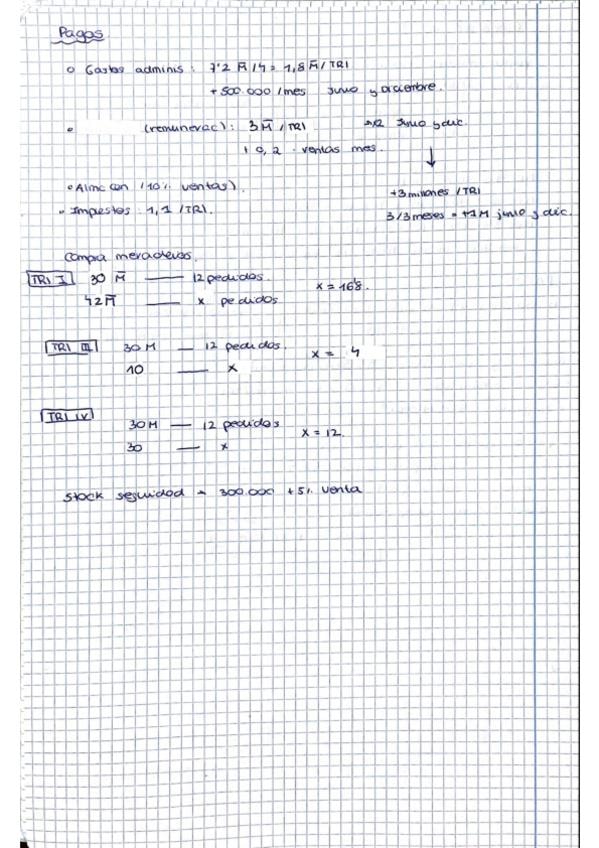 Pagos
Gastos adminis: 7'2 M /4 = 1,8 M / TRI
+ 500.000 /mes junio y diciembre.
(remunerac): 3 M / TRI x2 junio y dic.
+ 0,2 · ventas mes.
↓
• Almacen (10% ventas).
+ 3 millones / TRI
- Impestos 1,1 /TRI.
3/3 meses = +1 M junio y dic.
Compra mercaderias.
TRI I 30 M — 12 pedidos.
x = 16'8.
42 M — x pedidos
TRI III 30 M — 12 pedidos.
x = 4
10 — x
TRI IV
30 M — 12 pedidos
x = 12.
30 — x
Stock seguridad = 300.000 + 5% venta